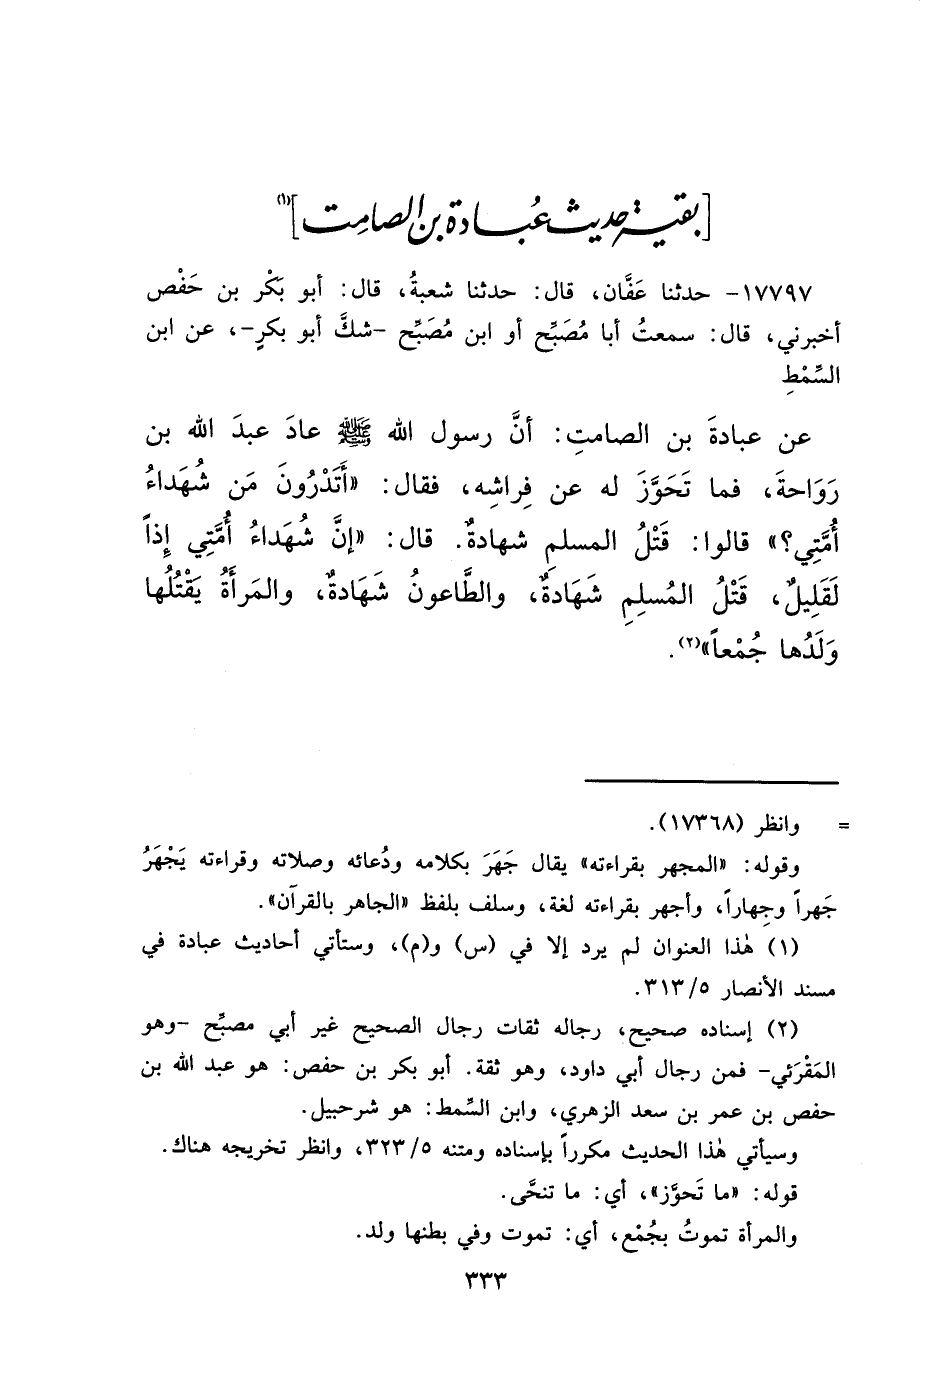 [بقية حديث عُبادة بن الصامِت](١)
١٧٧٩٧- حدثنا عَفَّان، قال: حدثنا شعبةُ، قال: أبو بَكْر بن حَفْص
أخبرني، قال: سمعتُ أبا مُصَبِّح أو ابن مُصَبِّح -شكَّ أبو بكرٍ-، عن ابن
السِّمْطِ
عن عبادةَ بن الصامتِ: أنَّ رسول الله ﷺ عادَ عبدَ الله بن
رَوَاحةَ، فما تَحَوَّزَ له عن فِراشِه، فقال: «أَتَدْرُونَ مَن شُهَداءُ
أُمَّتِي؟» قالوا: قَتْلُ المسلمِ شهادةٌ. قال: «إنَّ شُهَداءُ أُمَّتِي إِذاً
لَقَلِيلٌ، قَتْلُ المُسلِمِ شَهَادَةٌ، والطَّاعونُ شَهَادةٌ، والمَرأَةُ يَقْتُلُها
وَلَدُها جُمْعاً»(٢).
= وانظر (١٧٣٦٨).
وقوله: «المجهر بقراءته» يقال جَهَرَ بكلامه ودُعائه وصلاته وقراءته يَجْهَرُ
جَهراً وجِهاراً، وأجهر بقراءته لغة، وسلف بلفظ «الجاهر بالقرآن».
(١) هٰذا العنوان لم يرد إلا في (س) و(م)، وستأتي أحاديث عبادة في
مسند الأنصار ٣١٣/٥.
(٢) إسناده صحيح، رجاله ثقات رجال الصحيح غير أبي مصبِّح -وهو
المَقْرَئي- فمن رجال أبي داود، وهو ثقة. أبو بكر بن حفص: هو عبد الله بن
حفص بن عمر بن سعد الزهري، وابن السِّمط: هو شرحبيل.
وسيأتي هٰذا الحديث مكرراً بإسناده ومتنه ٣٢٣/٥، وانظر تخريجه هناك.
قوله: «ما تَحوَّز»، أي: ما تنحَّى.
والمرأة تموتُ بجُمْع، أي: تموت وفي بطنها ولد.
٣٣٣